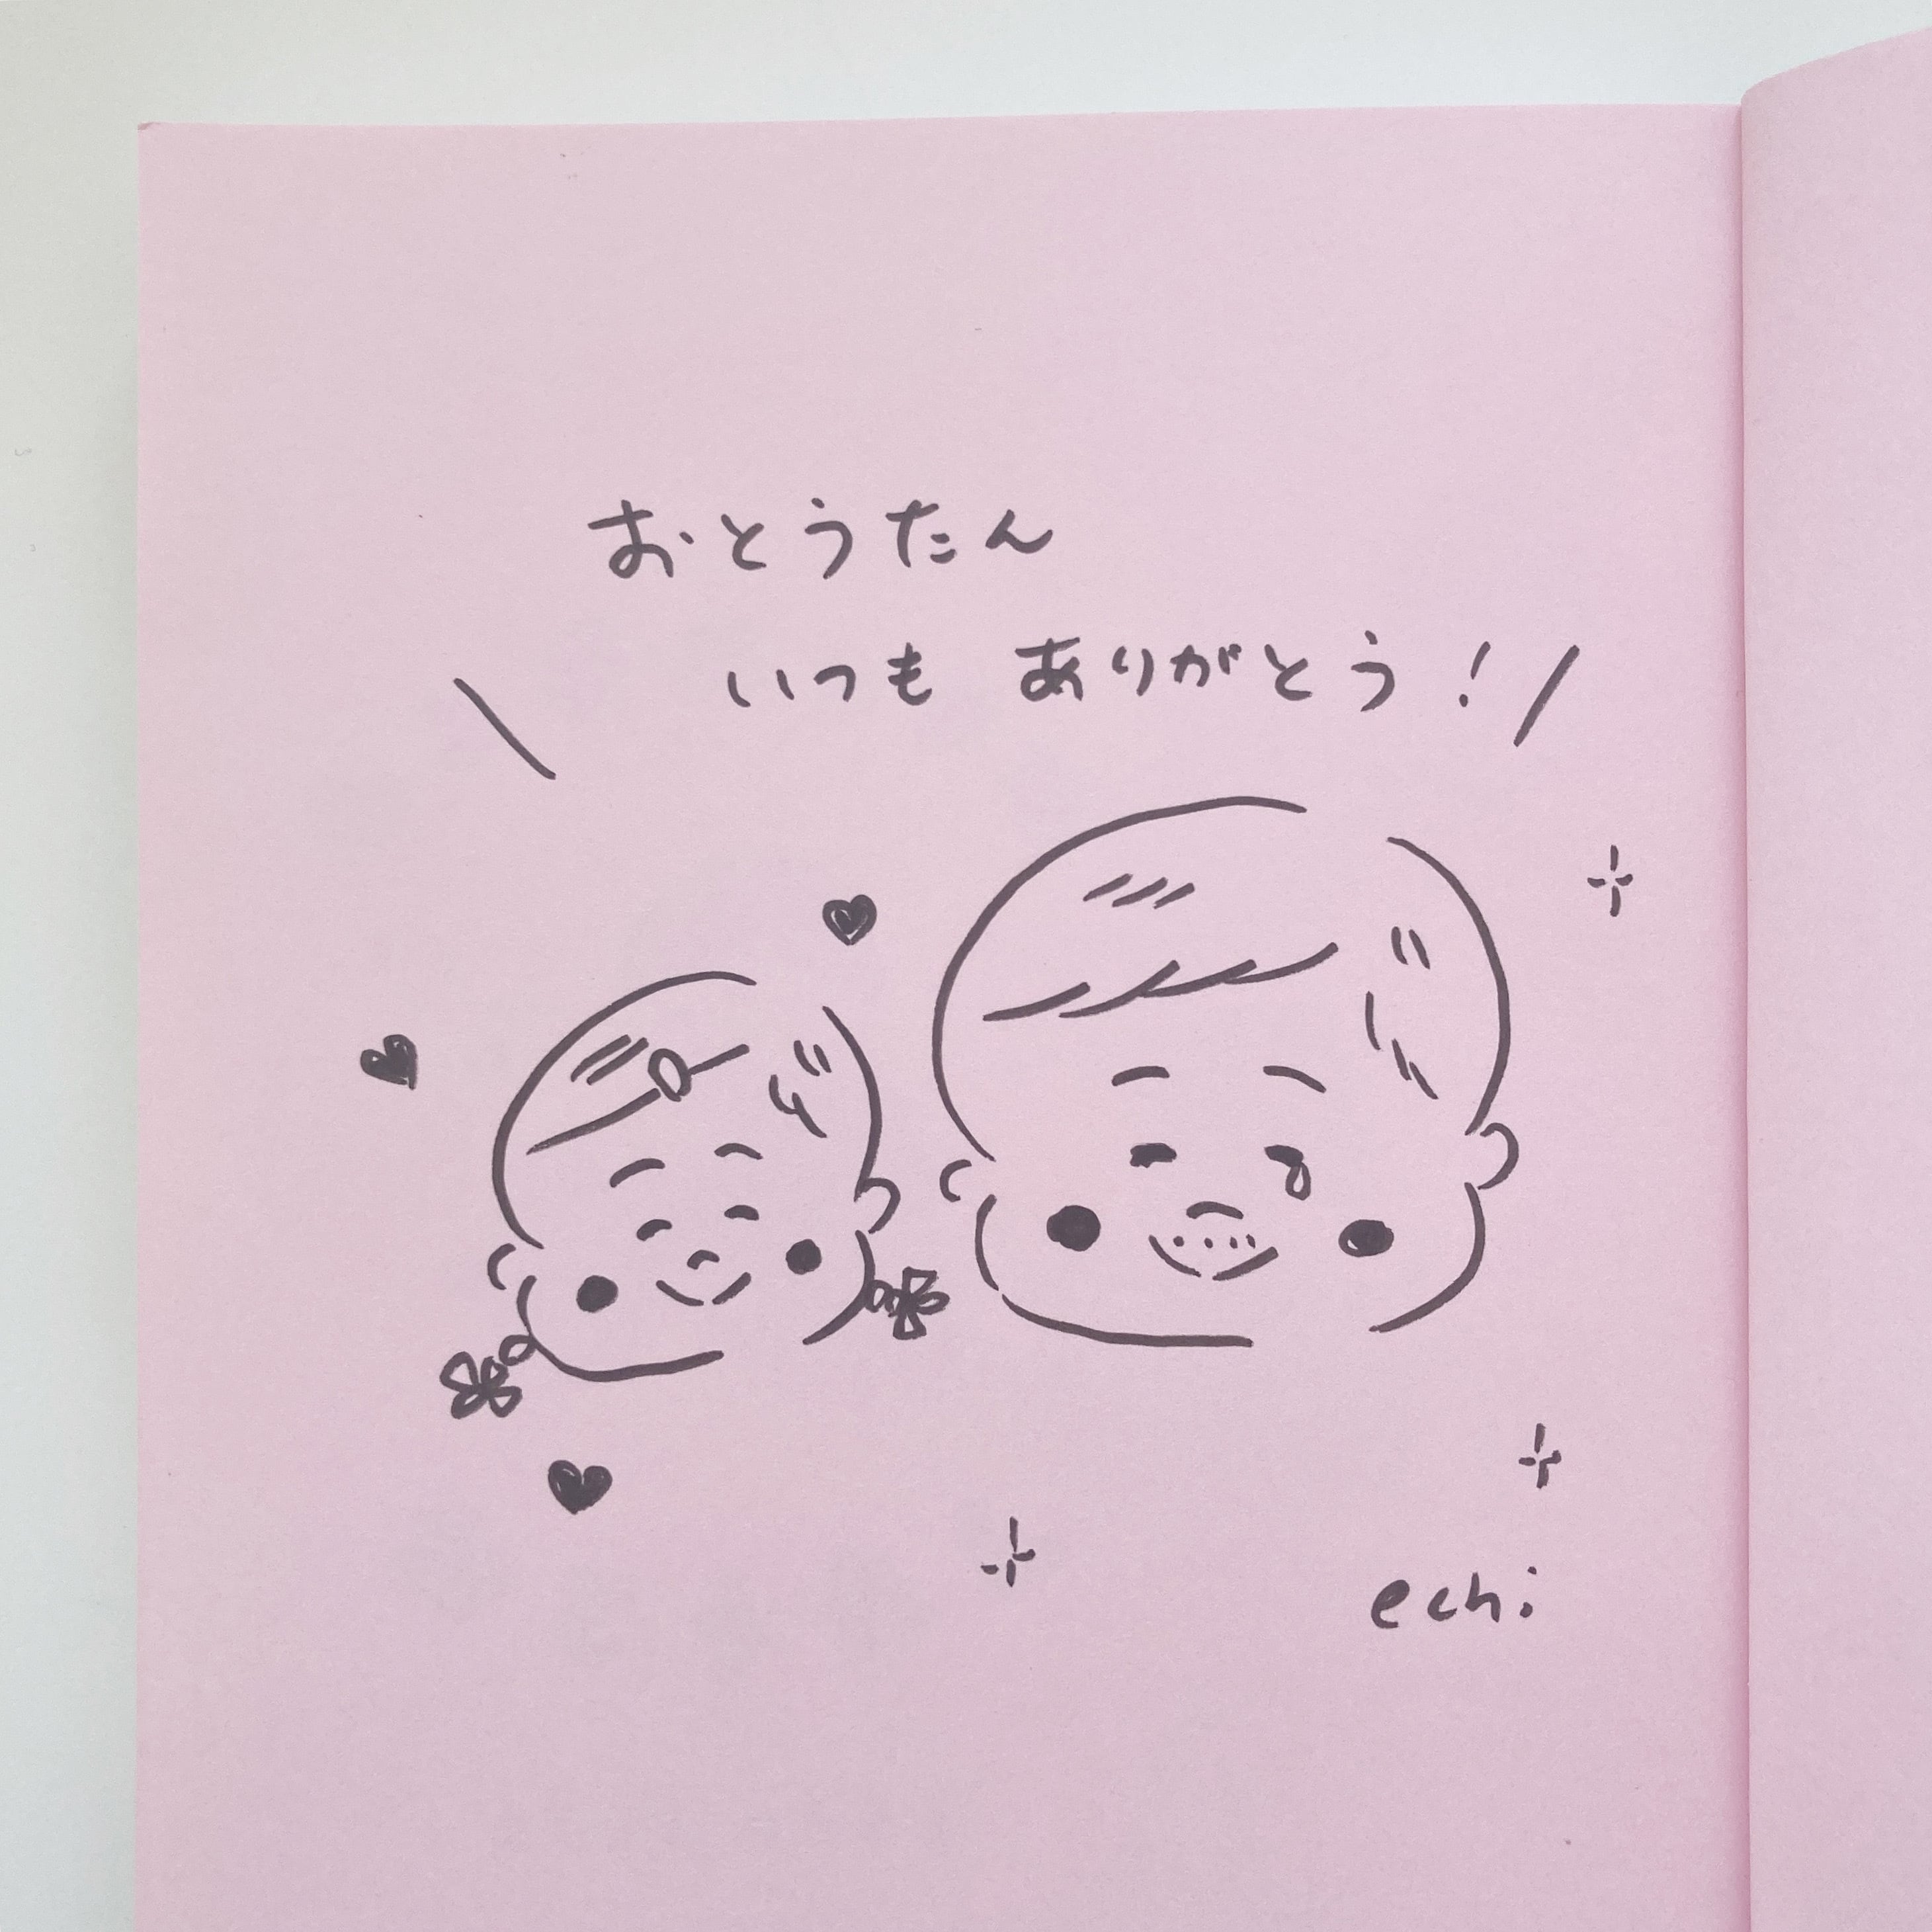 おとうたん
いつも ありがとう!
echi